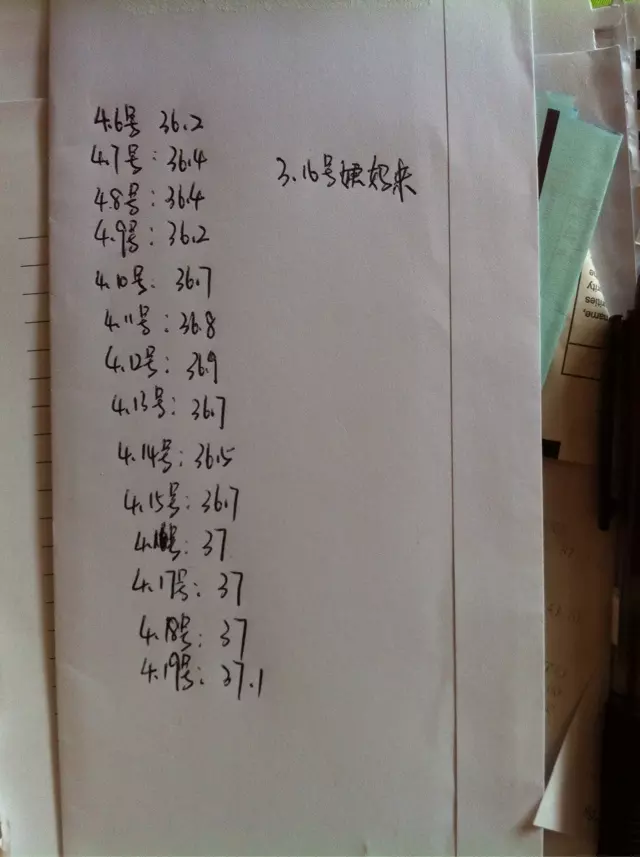 4.6号 36.2
4.7号：36.4
3.16号姨妈来
4.8号：36.4
4.9号：36.2
4.10号：36.7
4.11号：36.8
4.12号：36.9
4.13号：36.7
4.14号：36.5
4.15号：36.7
4.16号：37
4.17号：37
4.18号：37
4.19号：37.1
name,